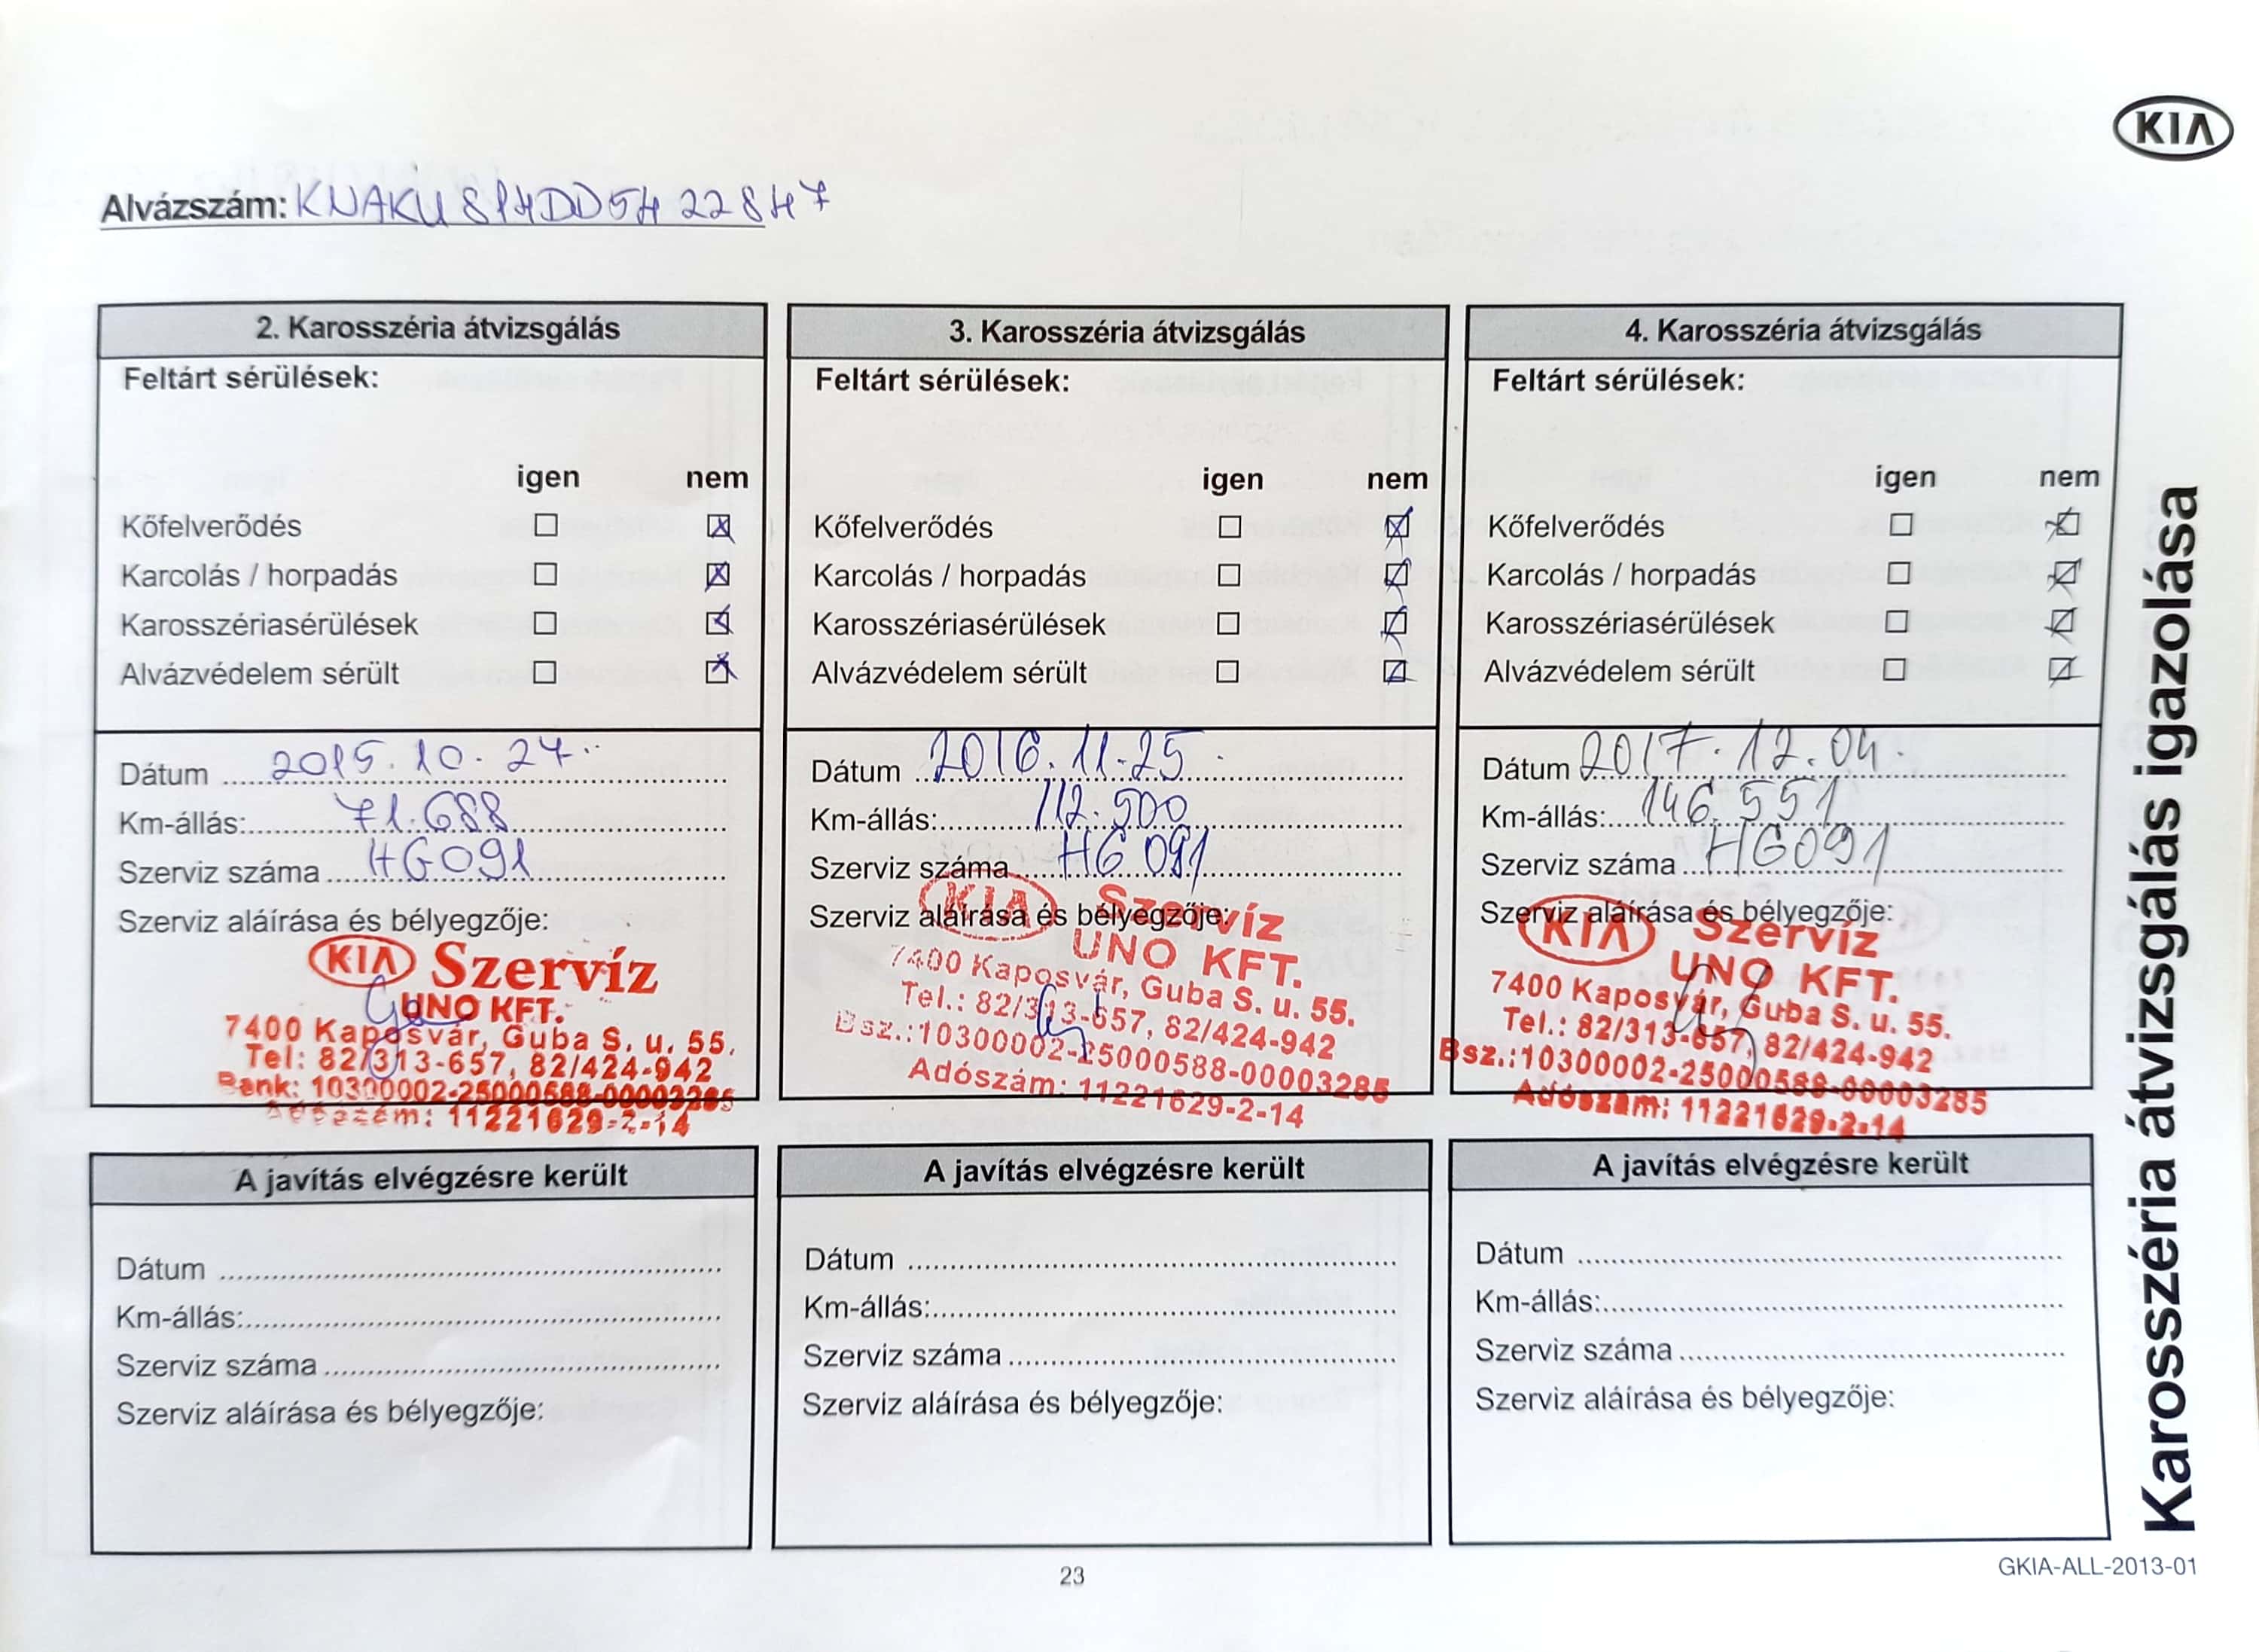 KIA
Alvázszám: KNAKU814DD5422847
2. Karosszéria átvizsgálás
Feltárt sérülések:
igen nem
Kőfelverődés
Karcolás / horpadás
Karosszériasérülések
Alvázvédelem sérült
Dátum 2015.10.27.
Km-állás: 71.688
Szerviz száma HG091
Szerviz aláírása és bélyegzője:
KIA Szervíz
UNO KFT.
7400 Kaposvár, Guba S. u. 55.
Tel: 82/313-657, 82/424-942
Bank: 10300002-25000588-00003285
Adószám: 11221629-2-14
3. Karosszéria átvizsgálás
Feltárt sérülések:
igen nem
Kőfelverődés
Karcolás / horpadás
Karosszériasérülések
Alvázvédelem sérült
Dátum 2016.11.25.
Km-állás: 112.500
Szerviz száma HG091
Szerviz aláírása és bélyegzője:
KIA Szervíz
UNO KFT.
7400 Kaposvár, Guba S. u. 55.
Tel.: 82/313-657, 82/424-942
Bsz.:10300002-25000588-00003285
Adószám: 11221629-2-14
4. Karosszéria átvizsgálás
Feltárt sérülések:
igen nem
Kőfelverődés
Karcolás / horpadás
Karosszériasérülések
Alvázvédelem sérült
Dátum 2017.12.04.
Km-állás: 146.551
Szerviz száma HG091
Szerviz aláírása és bélyegzője:
KIA Szervíz
UNO KFT.
7400 Kaposvár, Guba S. u. 55.
Tel.: 82/313-657, 82/424-942
Bsz.:10300002-25000588-00003285
Adószám: 11221629-2-14
A javítás elvégzésre került
Dátum
Km-állás:
Szerviz száma
Szerviz aláírása és bélyegzője:
A javítás elvégzésre került
Dátum
Km-állás:
Szerviz száma
Szerviz aláírása és bélyegzője:
A javítás elvégzésre került
Dátum
Km-állás:
Szerviz száma
Szerviz aláírása és bélyegzője:
Karosszéria átvizsgálás igazolása
23
GKIA-ALL-2013-01